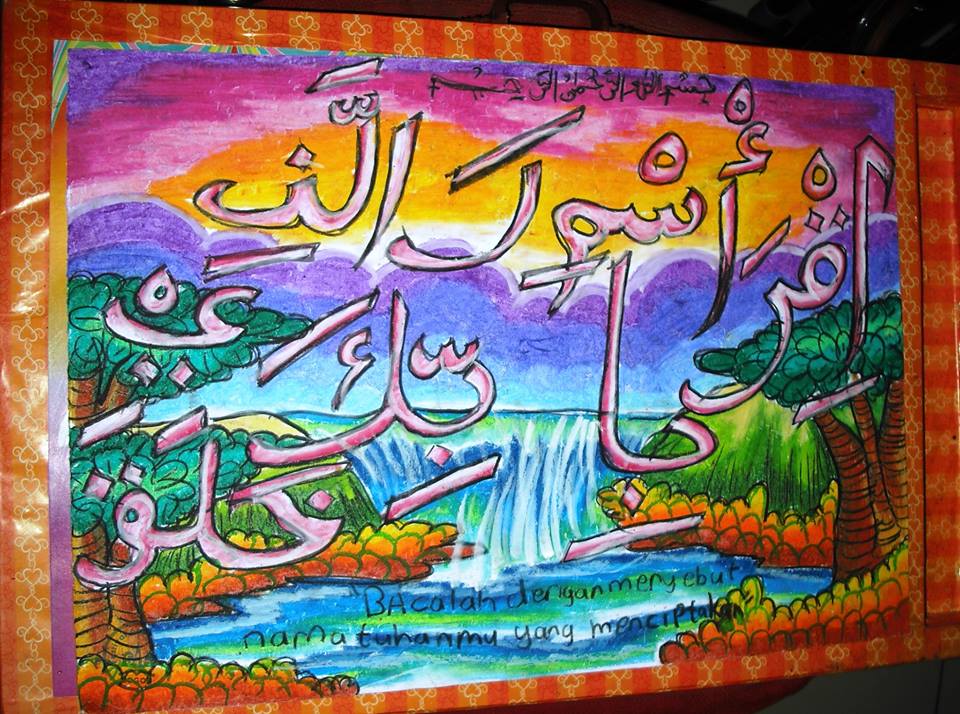 بسم الله الرحمن الرحيم
اِقْرَأْ بِاسْمِ رَبِّكَ الَّذِيْ
خَلَقَ
BAcalah dengan menyebut
nama tuhanmu yang menciptakan